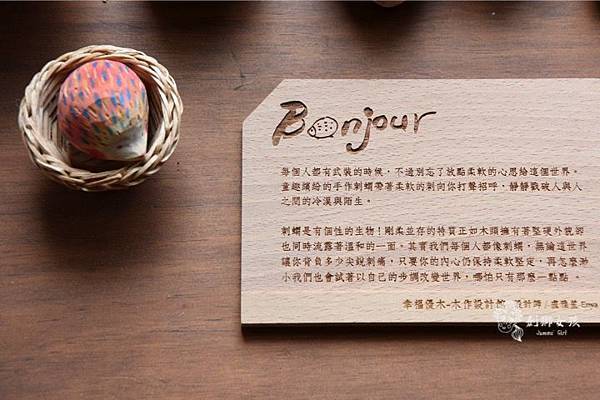 Bonjour
每個人都有武裝的時候，不過別忘了放點柔軟的心思給這個世界。
童趣繽紛的手作刺蝟帶著柔軟的刺向你打聲招呼，靜靜戳破人與人
之間的冷漠與陌生。
刺蝟是有個性的生物！剛柔並存的特質正如木頭擁有著堅硬外貌卻
也同時流露著溫和的一面。其實我們每個人都像刺蝟，無論這世界
讓你背負多少尖銳刺痛，只要你的內心仍保持柔軟堅定，再怎麼渺
小我們也會試著以自己的步調改變世界，哪怕只有那麼一點點。
幸福優木-木作設計館 設計師/盧雅基-Enya
Jummi' Girl